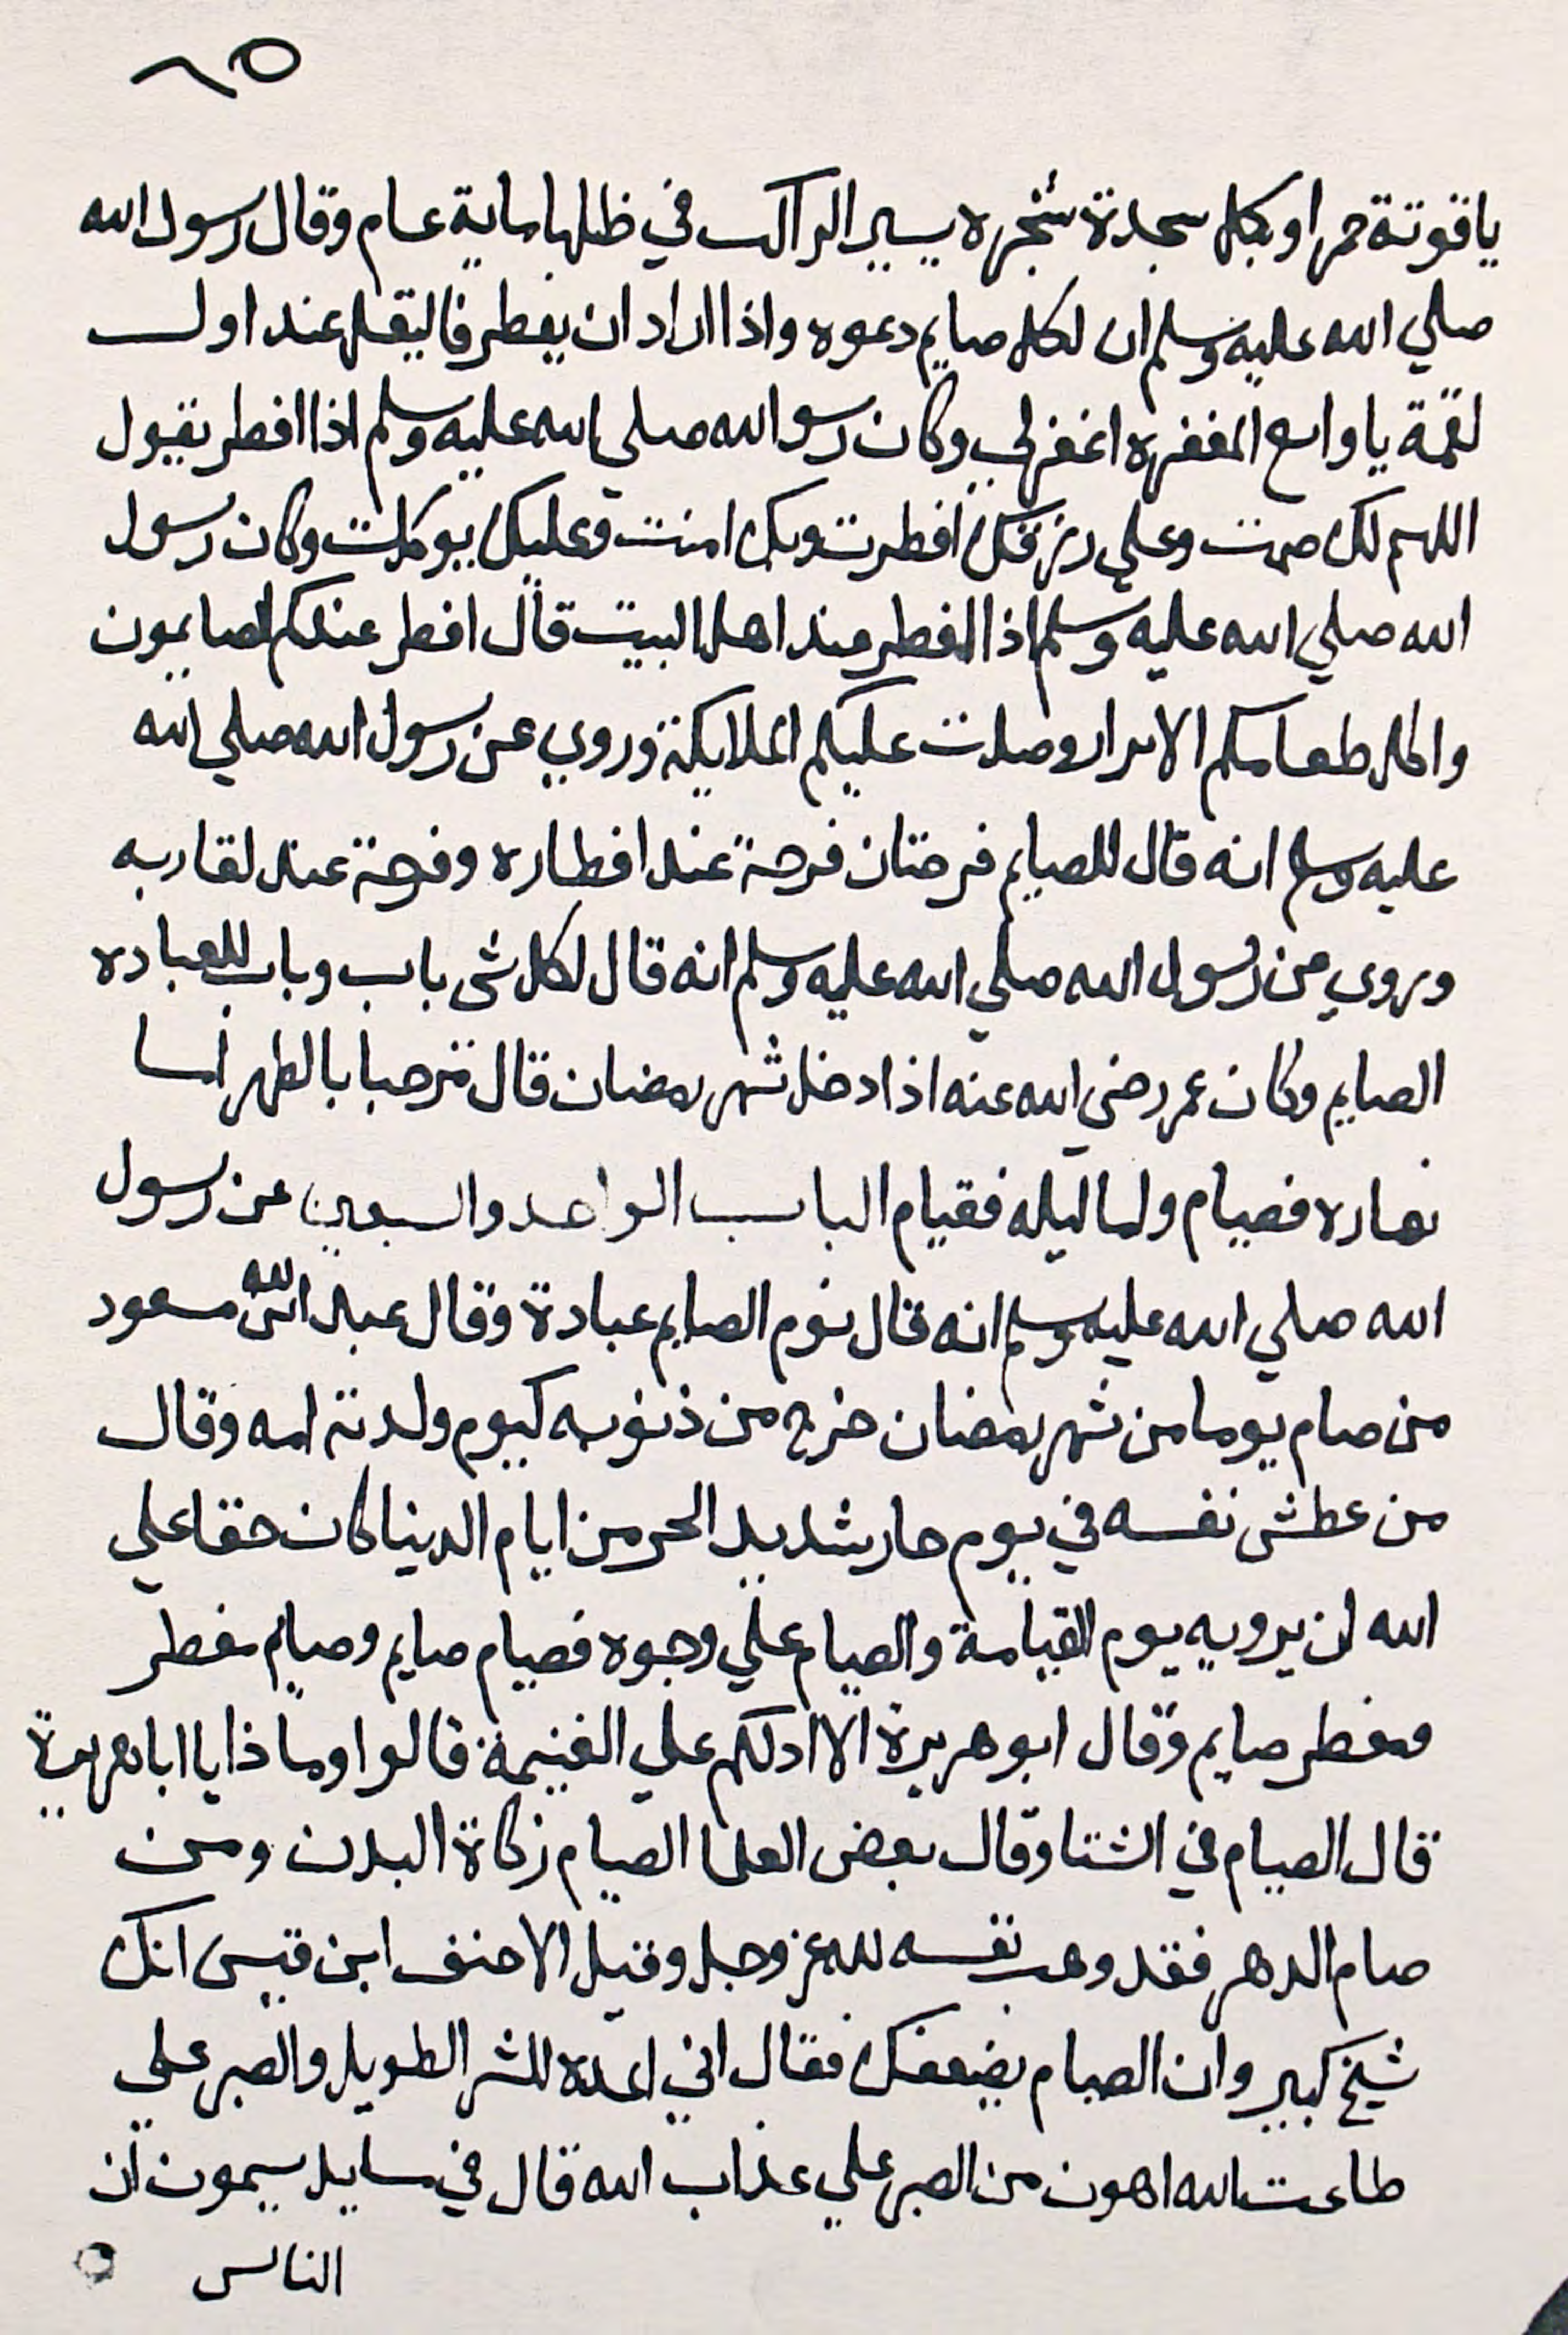 ٦٥
ياقوتة حمرا وبكل سجدة شجره يسير الراكب في ظلها ماية عام وقال رسول الله
صلي الله عليه وسلم ان لكل صايم دعوه واذا اراد ان يفطر فاليقل عند اول
لقمة يا واسع المغفره اغفرلي وكان رسو الله صلي الله عليه وسلم اذا افطر يقول
اللهم لك صمت وعلي رزقك افطرت وبك امنت وعليك يوكلت وكان رسول
الله صلي الله عليه وسلم اذا افطر عند اهل البيت قال افطر عندكم الصايمون
واكل طعامكم الابرار وصلت عليكم الملايكة وروي عن رسول الله صلي الله
عليه وسلم انه قال للصايم فرحتان فرحة عند افطاره وفرحة عند لقا ربه
وروي عن رسول الله صلي الله عليه وسلم انه قال لكل شى باب وباب للعباده
الصايم وكان عمر رضي الله عنه اذا دخل شهر رمضان قال مرحبا بالطهر اما
نهاره فصيام واما ليله فقيام الباب الواحد والسبعين عن رسول
الله صلي الله عليه وسلم انه قال نوم الصايم عبادة وقال عبد الله ابن مسعود
من صام يوما من شهر رمضان خرج من ذنوبه كيوم ولدته امه وقال
من عطش نفسه في يوم حار شديد الحر من ايام الدينا كان حقا علي
الله ان يرويه يوم القيامة والصيام علي وجوه فصيام صايم وصيام مفطر
ومفطر صايم وقال ابو هريرة الا ادلكم علي الغنيمة قالوا وماذا يا ابا هريرة
قال الصيام في الشتا وقال بعض العلما الصيام زكاة البدن ومن
صام الدهر فقد وهب نفسه لله عز وجل وقيل الاحنف ابن قيس انك
شيخ كبير وان الصيام يضعفك فقال اني اعده للشر الطويل والصبر علي
طاعت الله اهون من الصبر علي عذاب الله قال في سايل سيمون ان
الناس